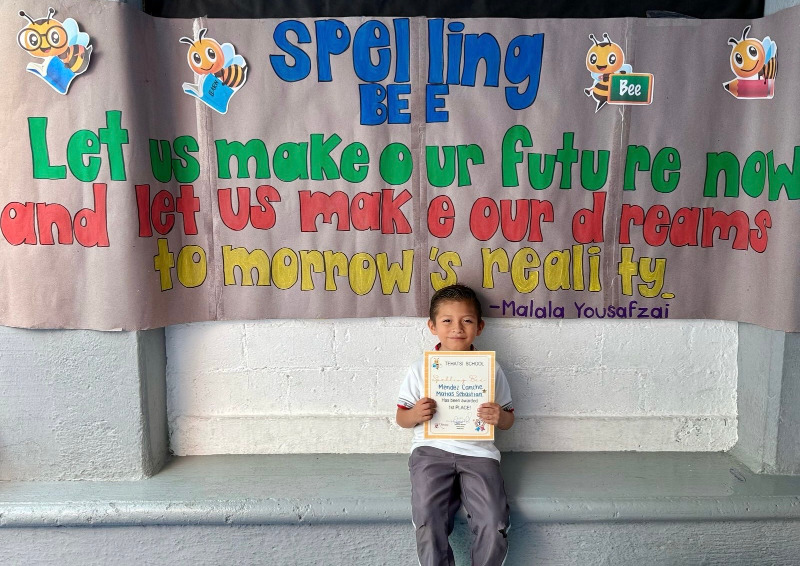 Spelling
BEE
Let us make our future now
and let us make our dreams
tomorrow's reality.
-Malala Yousafzai
Bee
TEHATSI SCHOOL
Spelling Bee
Mendez Canche
Matias Sebastian
Has been awarded
1st PLACE!